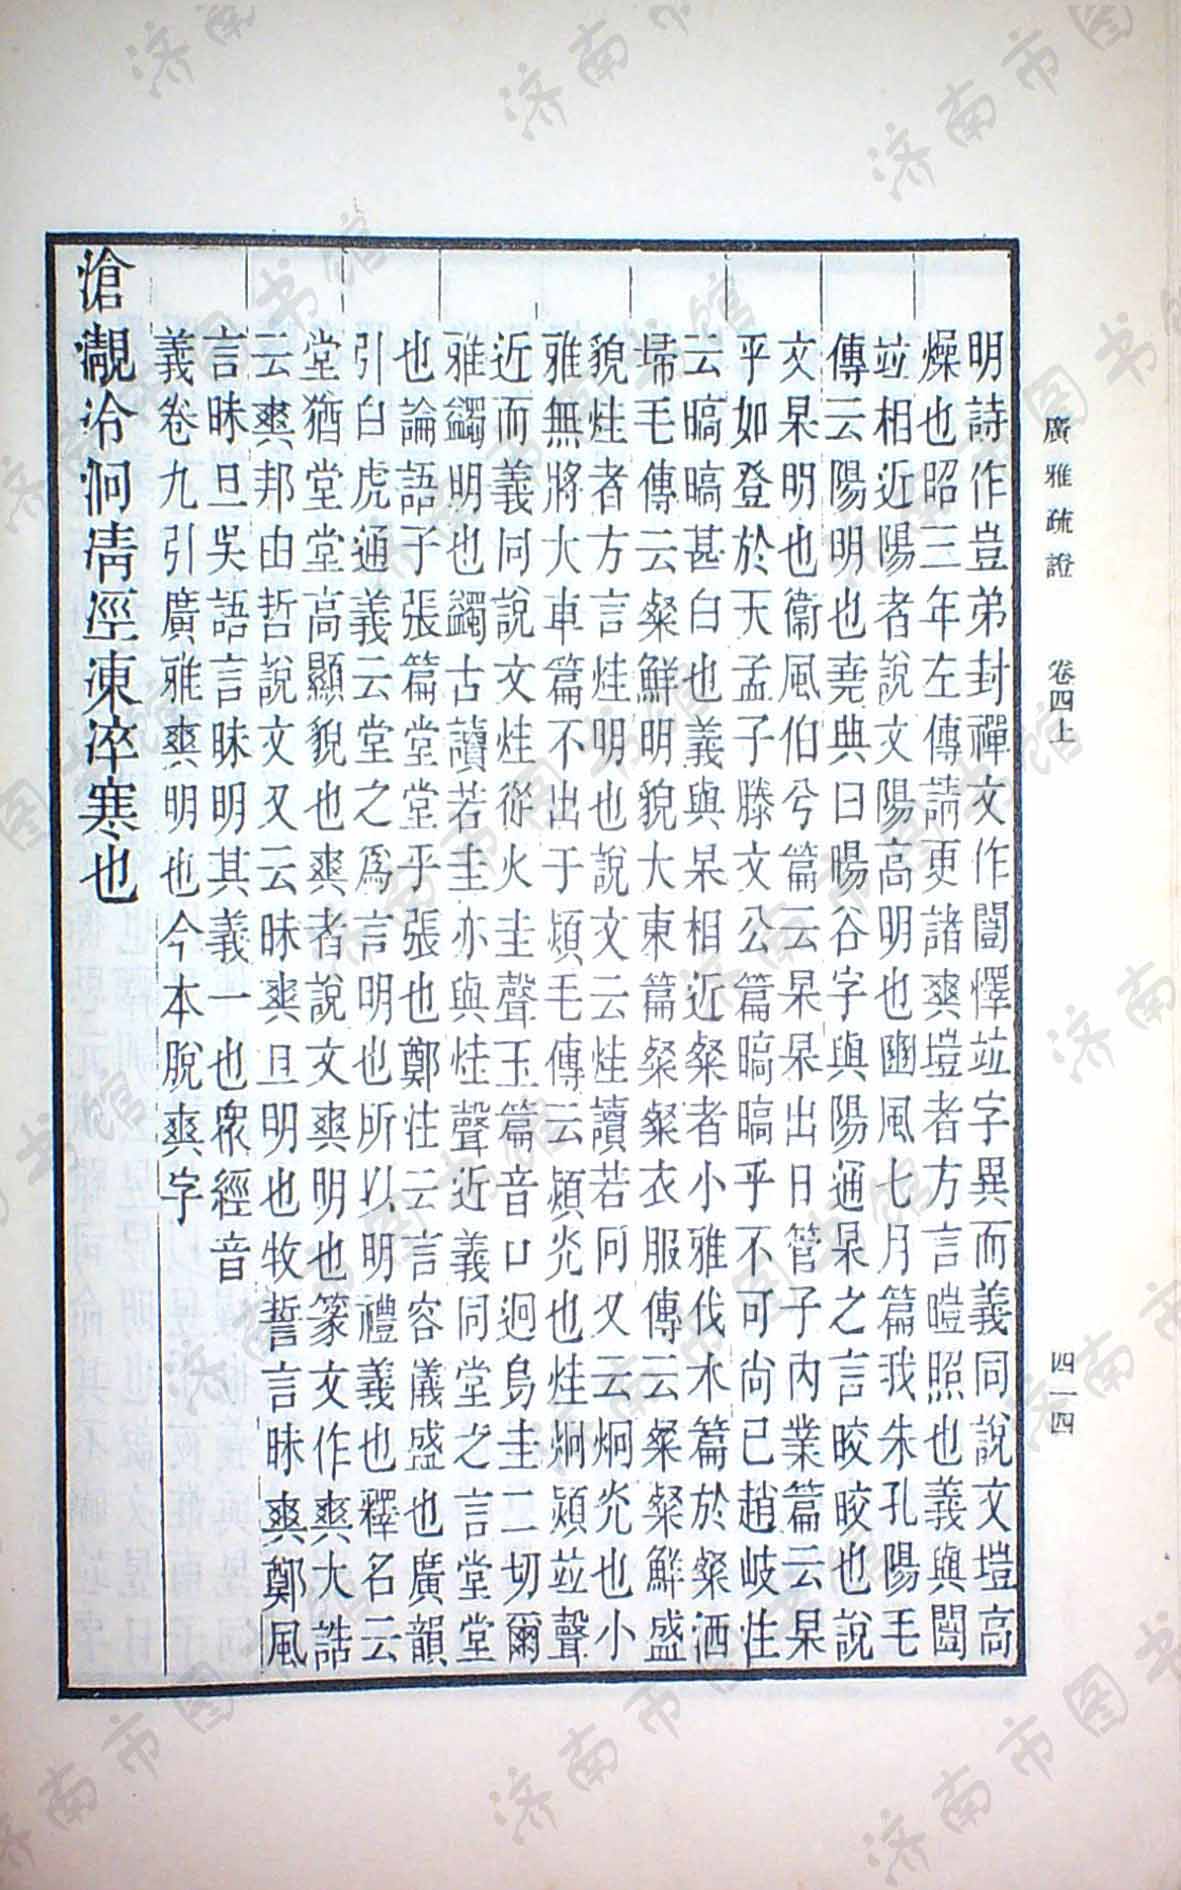 廣雅疏證 卷四上 四一四
明詩作豈弟封禪文作闓懌竝字異而義同說文塏高
燥也昭三年左傳請更諸爽塏者方言暟照也義與闓
竝相近陽者說文陽高明也豳風七月篇我朱孔陽毛
傳云陽明也堯典曰暘谷字與陽通杲之言皎皎也說
文杲明也衞風伯兮篇云杲杲出日管子內業篇云杲
乎如登於天孟子滕文公篇暠暠乎不可尚已趙岐注
云暠暠甚白也義與杲相近粲者小雅伐木篇於粲洒
埽毛傳云粲鮮明貌大東篇粲粲衣服傳云粲粲鮮盛
貌烓者方言烓明也說文云烓讀若冋又云炯光也小
雅無將大車篇不出于熲毛傳云熲光也烓炯熲竝聲
近而義同說文烓從火圭聲玉篇音口迥烏圭二切爾
雅蠲明也蠲古讀若圭亦與烓聲近義同堂之言堂堂
也論語子張篇堂堂乎張也鄭注云言容儀盛也廣韻
引白虎通義云堂之爲言明也所以明禮義也釋名云
堂猶堂堂高顯貌也爽者說文爽明也篆文作爽大誥
云爽邦由哲說文又云昧爽旦明也牧誓言昧爽鄭風
言昧旦吳語言昧明其義一也衆經音
義卷九引廣雅爽明也今本脫爽字
滄瀙冷泂凊凐凍淬寒也